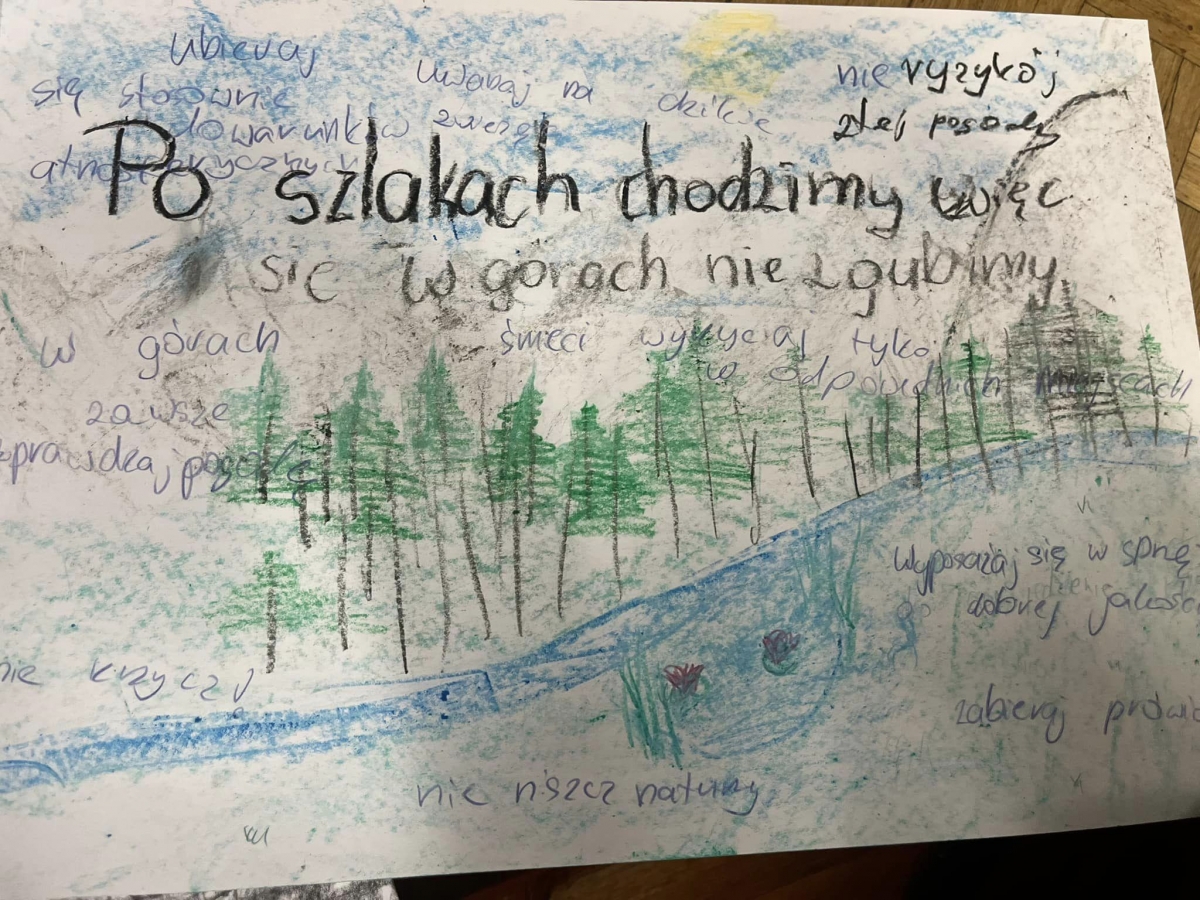 ubieraj
się stosownie
do warunków
atmosferycznych
Uwarzaj na dzikie
zwierzę
nie ryzykój
złej pogody
Po szlakach chodzimy więc
się w górach nie zgubimy
w górach
zawsze
sprawdzaj pogodę
śmieci wyżycaj tyko
w odpowiednich miejscach
Wyposażaj się w sprzę
dobrej jakości
nie krzycz!
zabieraj prowia
nie niszcz natury